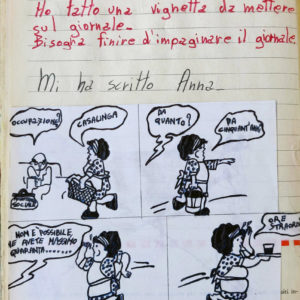 Ho fatto una vignetta da mettere
sul giornale.
Bisogna finire d'impaginare il giornale
Mi ha scritto Anna...
OCCUPAZIONE?
CASALINGA
DA
QUANTO?
DA
CINQUANT'ANNI
NON È POSSIBILE,
NE AVETE MASSIMO
QUARANTA......
ORE
STRAORD